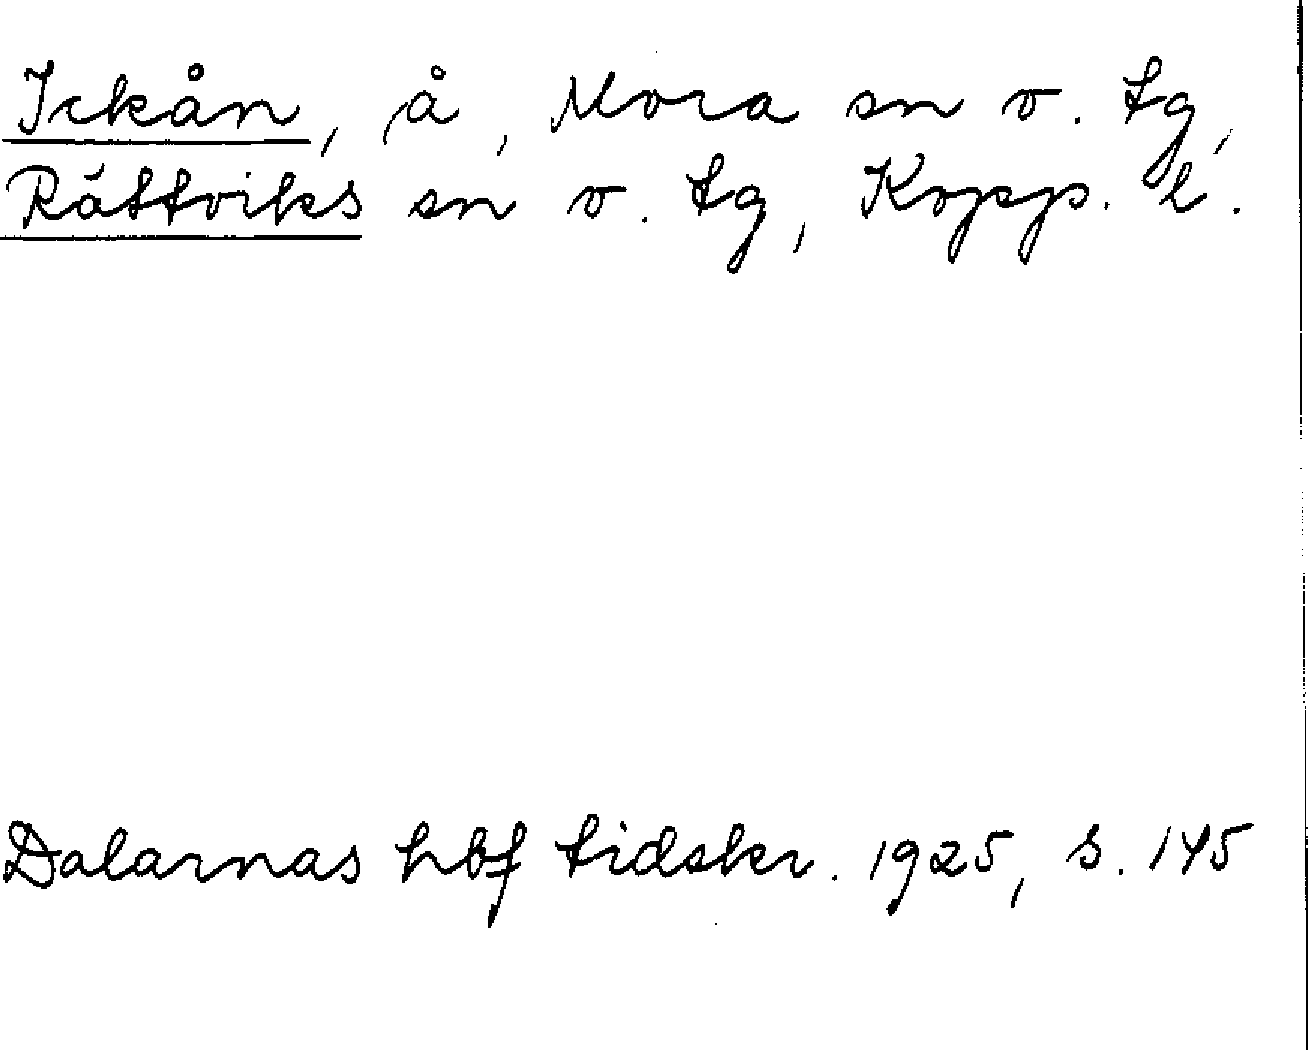 Ickån, å, Mora sn o. tg,
Rättviks sn o. tg, Kopp. l.
Dalarnas hbf tidskr. 1925, s. 145